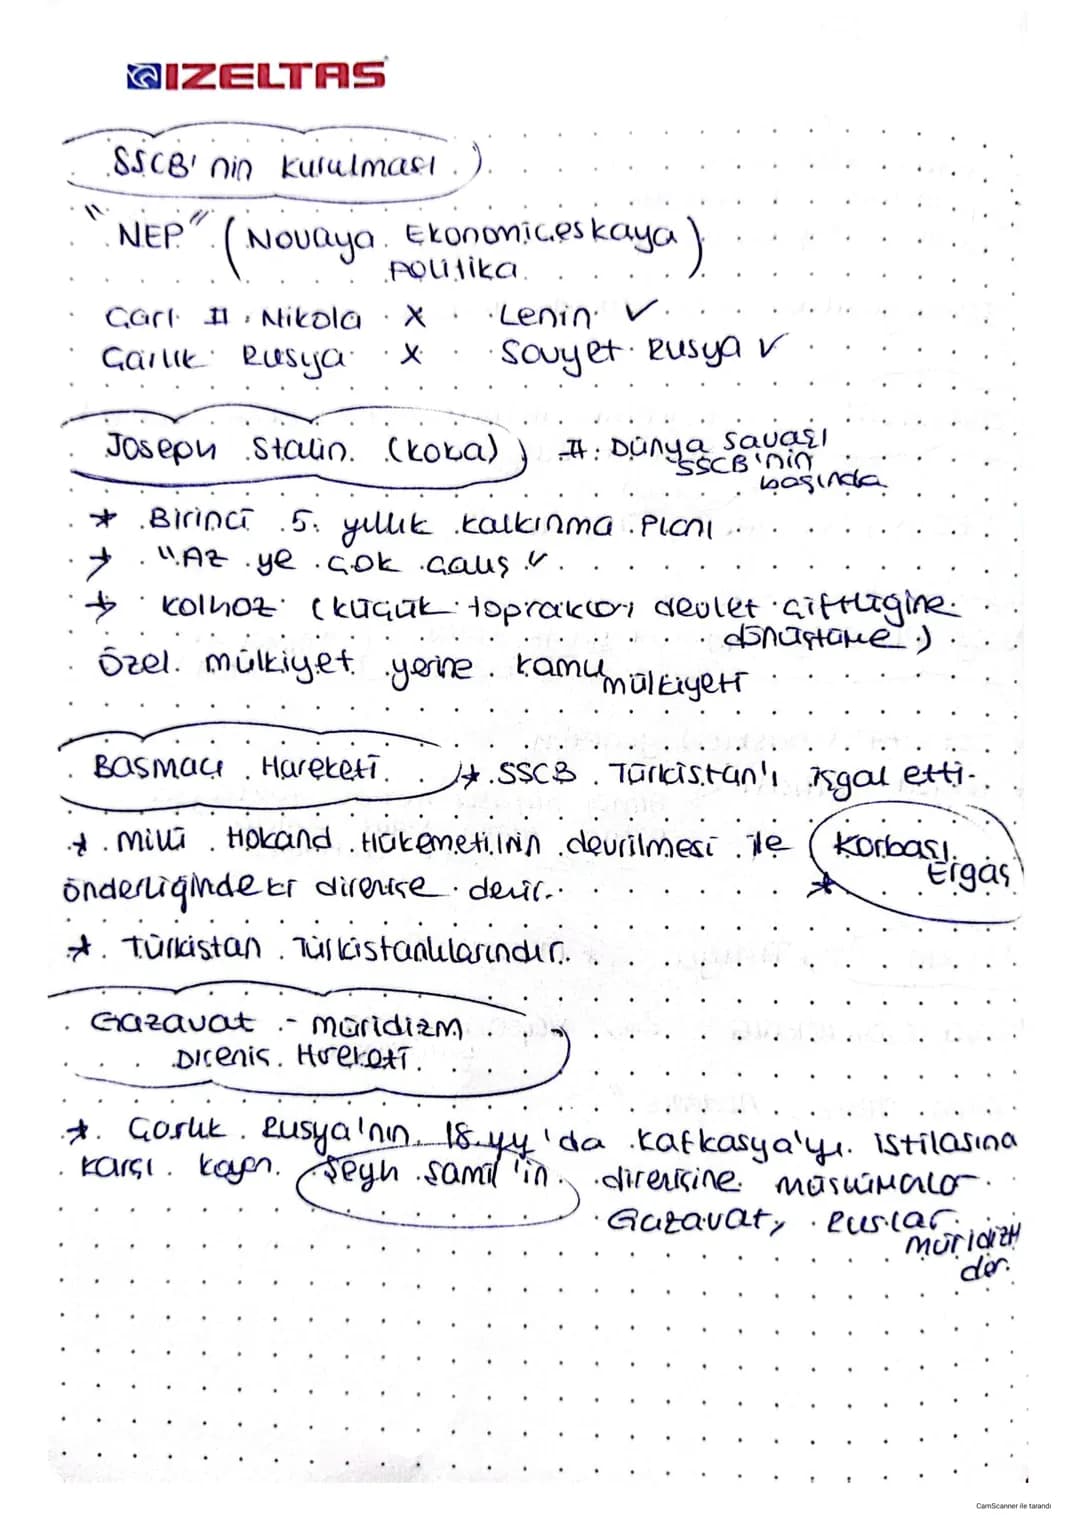 IZELTAS
SSCB'nin Kurulması
"NEP" (Novaya Ekonomiçeskaya
Politika)
Çarl II. Nikola X Lenin ✓
Çarlık Rusya X Sovyet Rusya ✓
Joseph Stalin (Koba) II. Dünya Savaşı
SSCB'nin
başında
* Birinci 5 yıllık kalkınma Planı
* "Az ye çok çalış"
* Kolhoz (küçük toprakları devlet çiftliğine
dönüştürme)
Özel mülkiyet yerine kamu
mülkiyeti
Basmacı Hareketi * SSCB Türkistan'ı işgal etti.
* Milli Hokand Hükümeti'nin devrilmesi ile Korbaşı
Ergaş
önderliğindeki direnişe denir.
* Türkistan Türkistanlılarındır.
Gazavat - müridizm
Direniş Hareketi
* Çarlık Rusya'nın 18.yy'da Kafkasya'yı istilasına
karşı koyan Şeyh Şamil'in direnişine müslümanlar
Gazavat, Ruslar
müridizm
der.
CamScanner ile tarandı